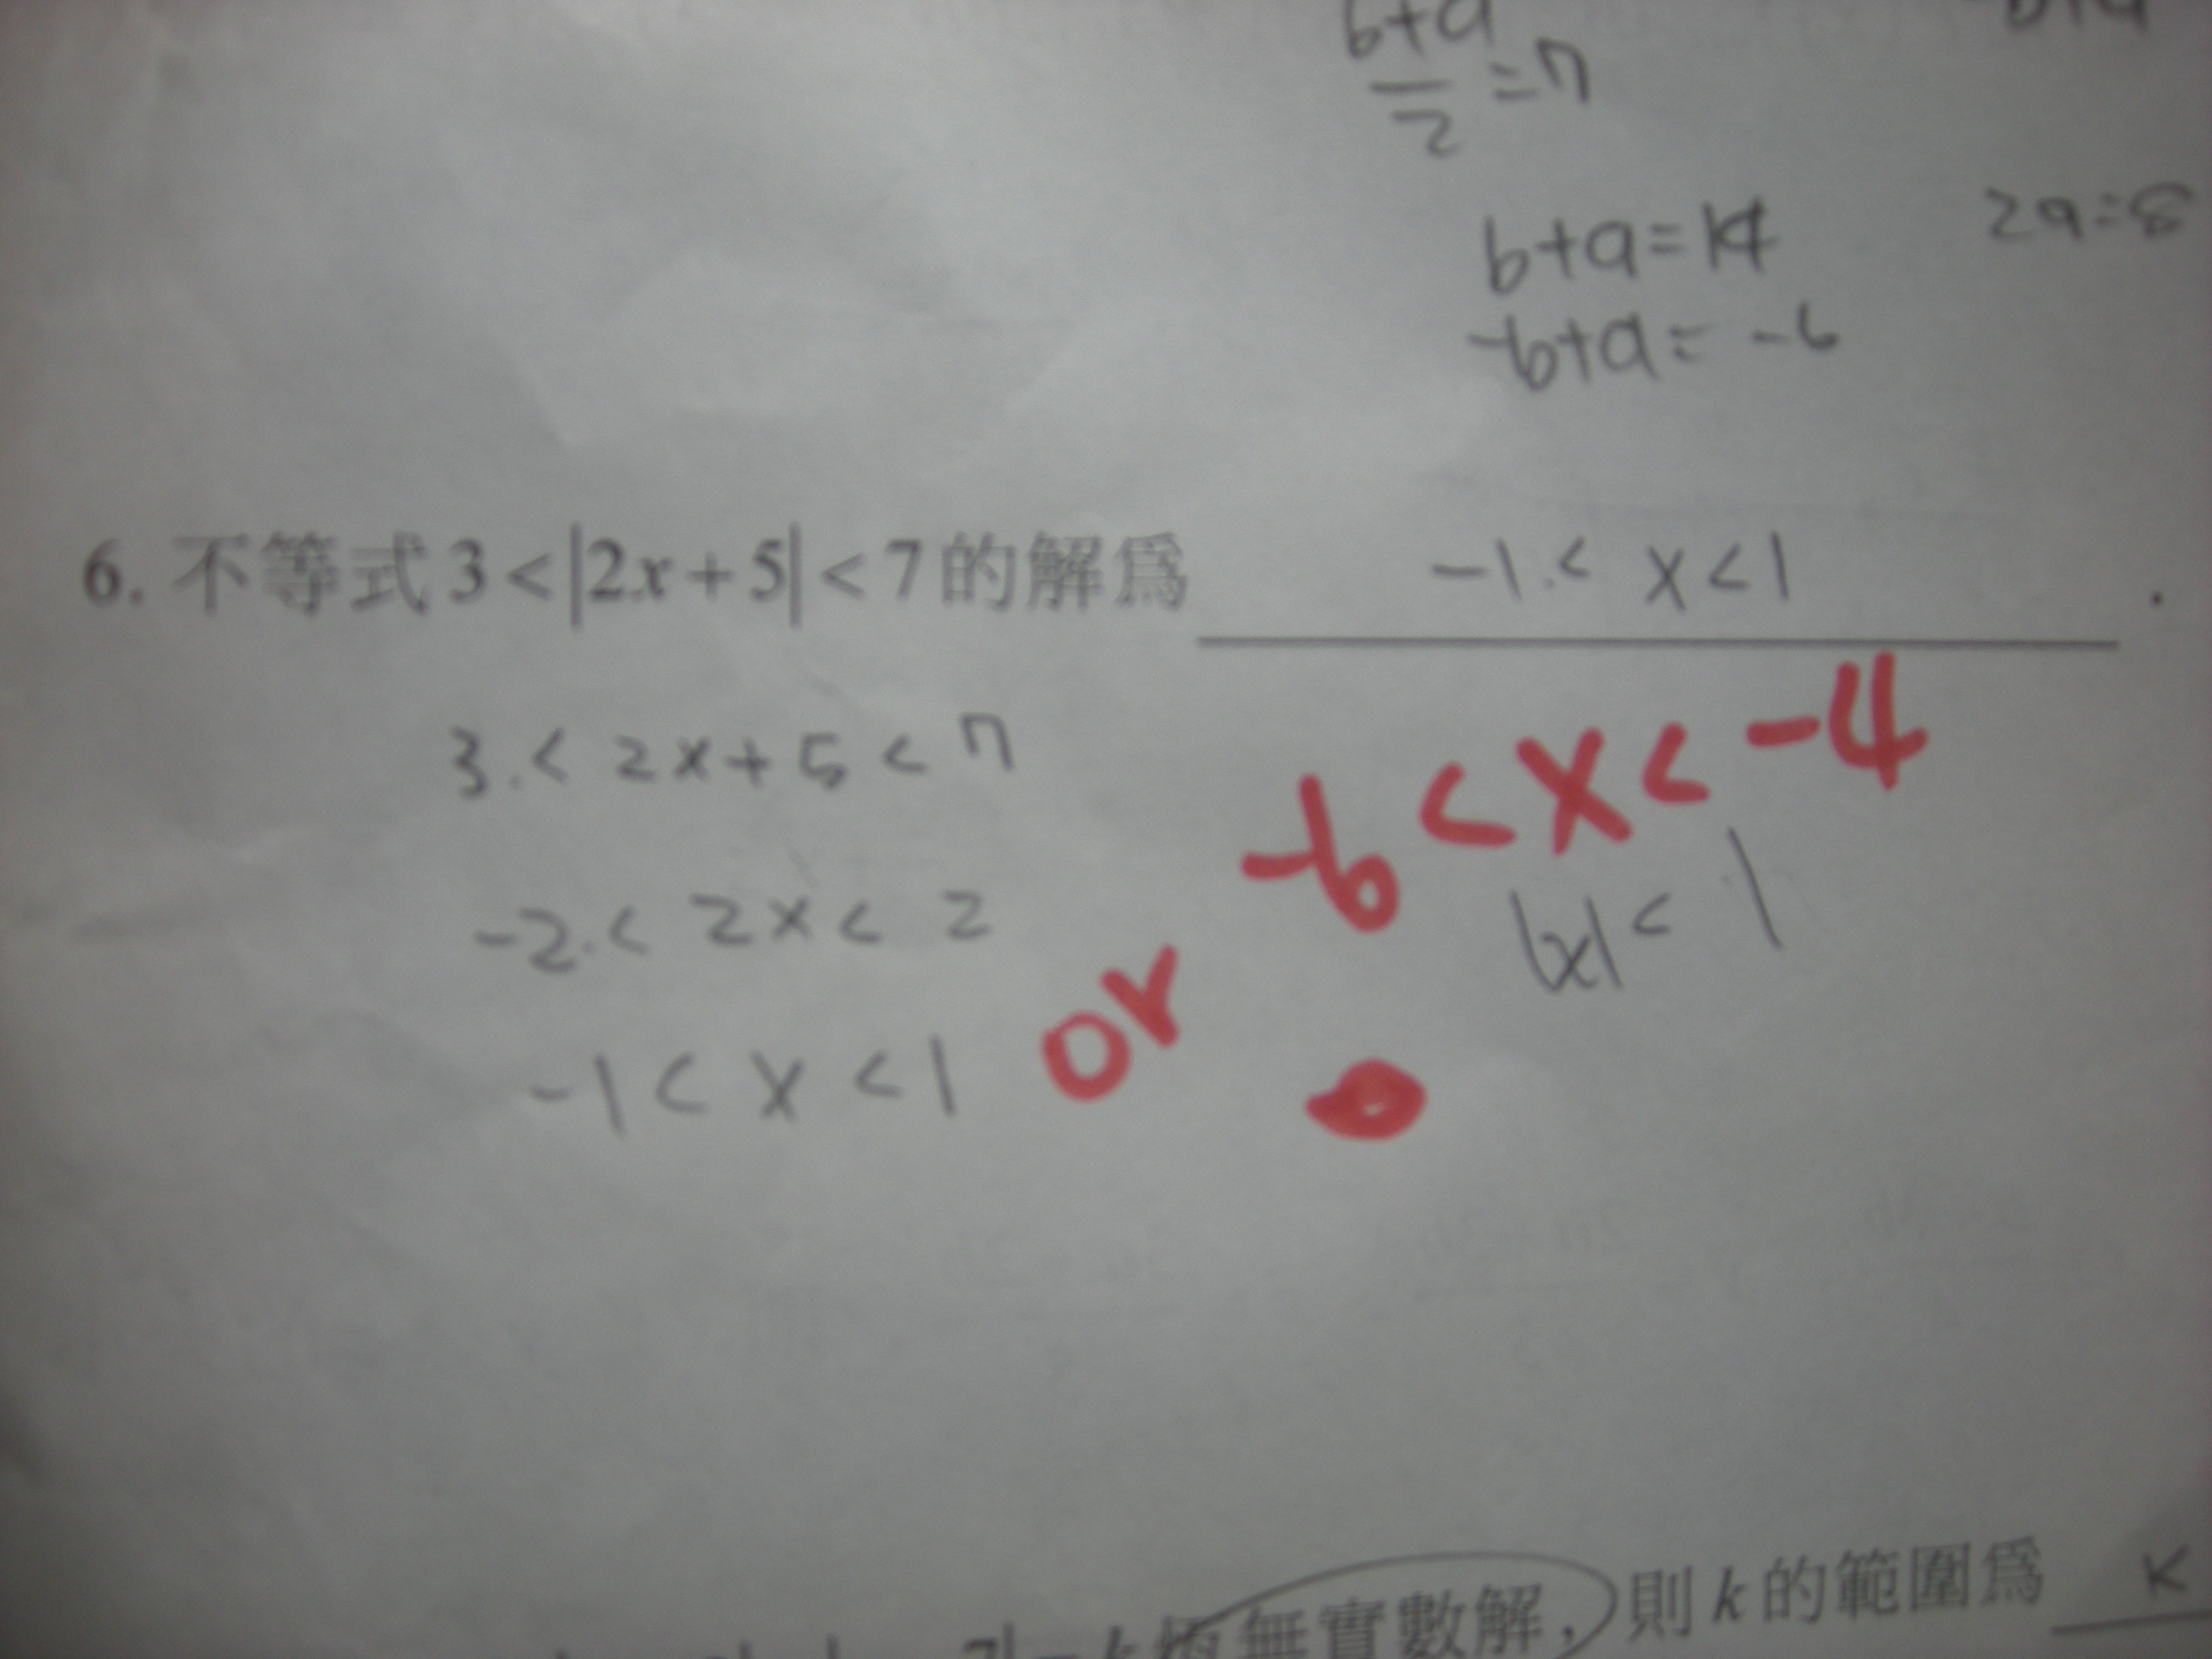 b+a
— =7
2
b+a=14
2a=8
-b+a= -6
6. 不等式 3<|2x+5|<7 的解為 -1<x<1 .
3<2x+5<7
-6<x<-4
-2<2x<2
|x|<1
-1<x<1 or
無實數解，則 k 的範圍為 K